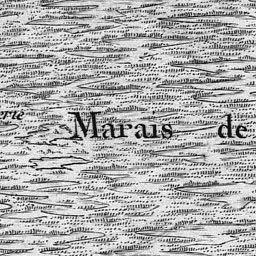 erie
Marais de